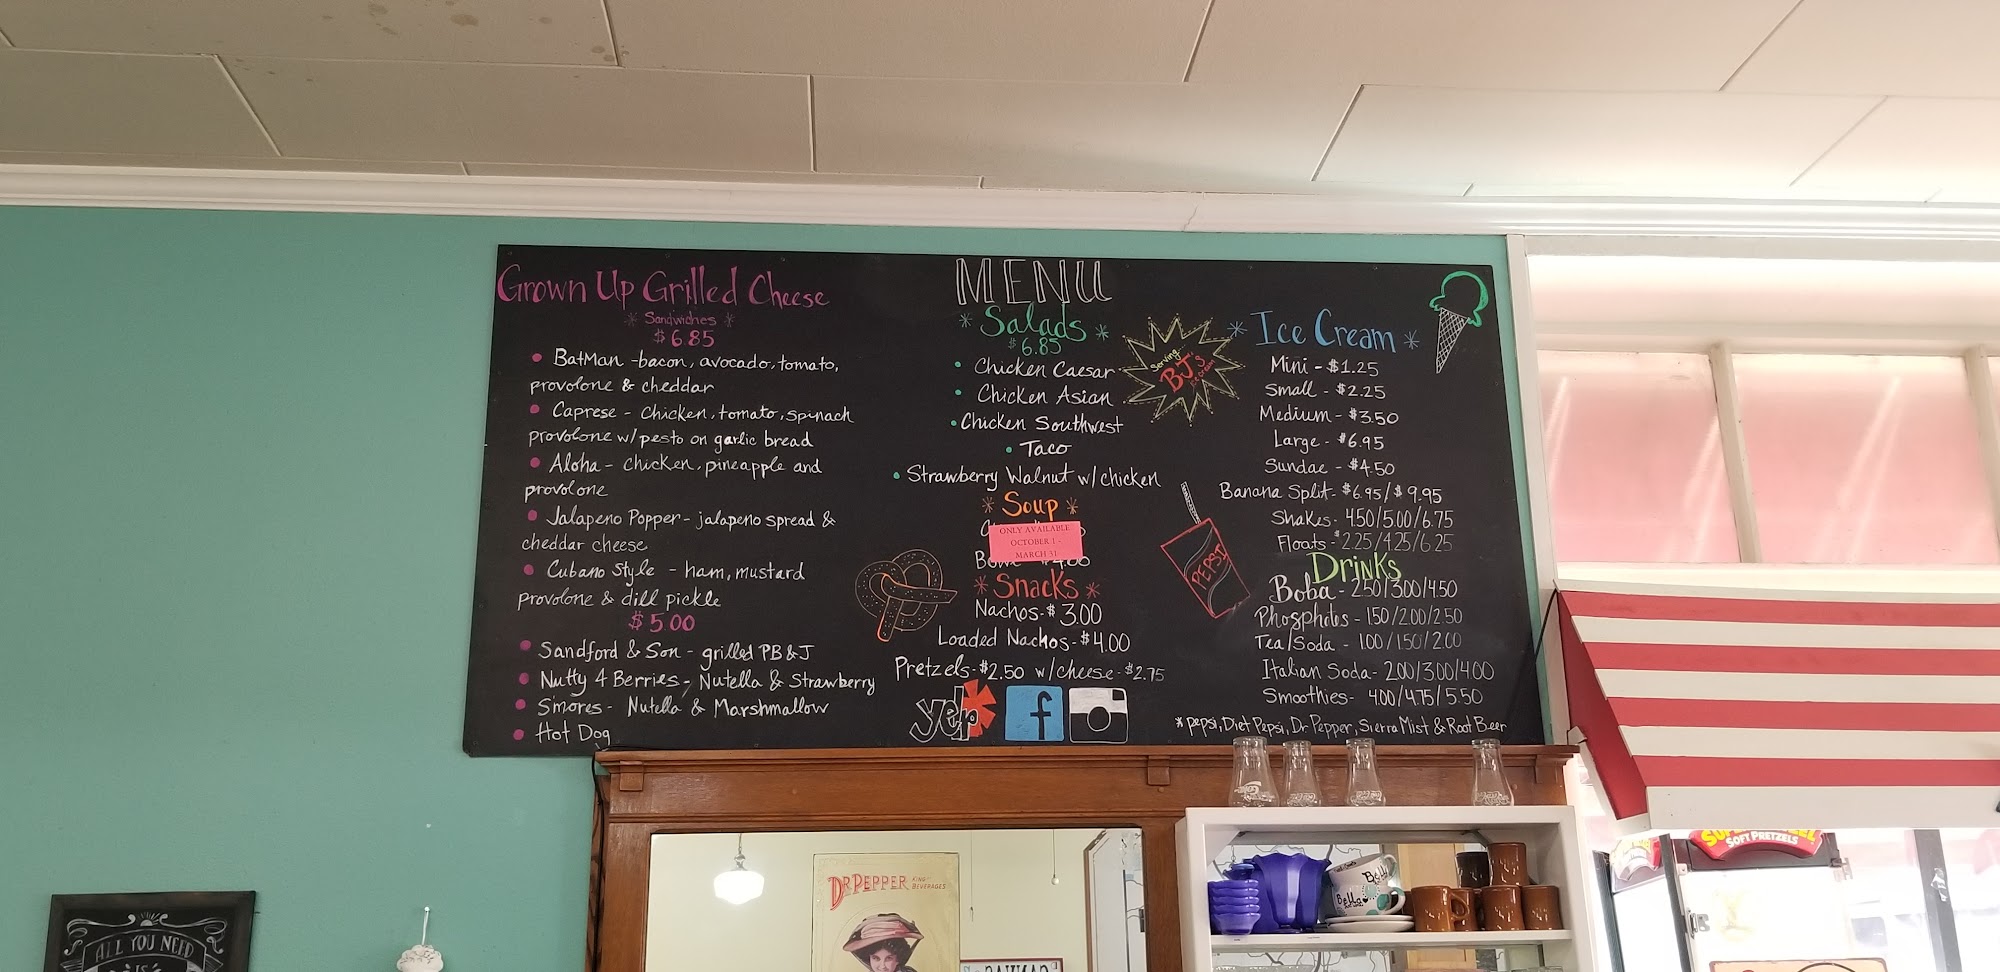 Grown Up Grilled Cheese
* Sandwiches *
$6.85
• BatMan - bacon, avocado, tomato,
provolone & cheddar
• Caprese - Chicken, tomato, spinach
provolone w/pesto on garlic bread
• Aloha - chicken, pineapple and
provolone
• Jalapeno Popper - jalapeno spread &
cheddar cheese
• Cubano Style - ham, mustard
provolone & dill pickle
$5.00
• Sandford & Son - grilled PB & J
• Nutty 4 Berries - Nutella & Strawberry
• S'mores - Nutella & Marshmallow
• Hot Dog
MENU
* Salads *
$6.85
• Chicken Caesar
• Chicken Asian
• Chicken Southwest
• Taco
• Strawberry Walnut w/chicken
* Soup *
ONLY AVAILABLE
OCTOBER 1 -
MARCH 31
$4.00
* Snacks *
Nachos - $3.00
Loaded Nachos - $4.00
Pretzels - $2.50 w/cheese - $2.75
yelp
f
Serving
BJ's
ice cream
PEPSI
* Ice Cream *
Mini - $1.25
Small - $2.25
Medium - $3.50
Large - $6.95
Sundae - $4.50
Banana Split - $6.95/$9.95
Shakes - 4.50/5.00/6.75
Floats - $2.25/4.25/6.25
Drinks
Boba - 2.50/3.00/4.50
Phosphates - 1.50/2.00/2.50
Tea/Soda - 1.00/1.50/2.00
Italian Soda - 2.00/3.00/4.00
Smoothies - 4.00/4.75/5.50
* Pepsi, Diet Pepsi, Dr Pepper, Sierra Mist & Root Beer
SOFT PRETZELS
DR PEPPER
KING OF
BEVERAGES
Bella
ALL YOU NEED
IS